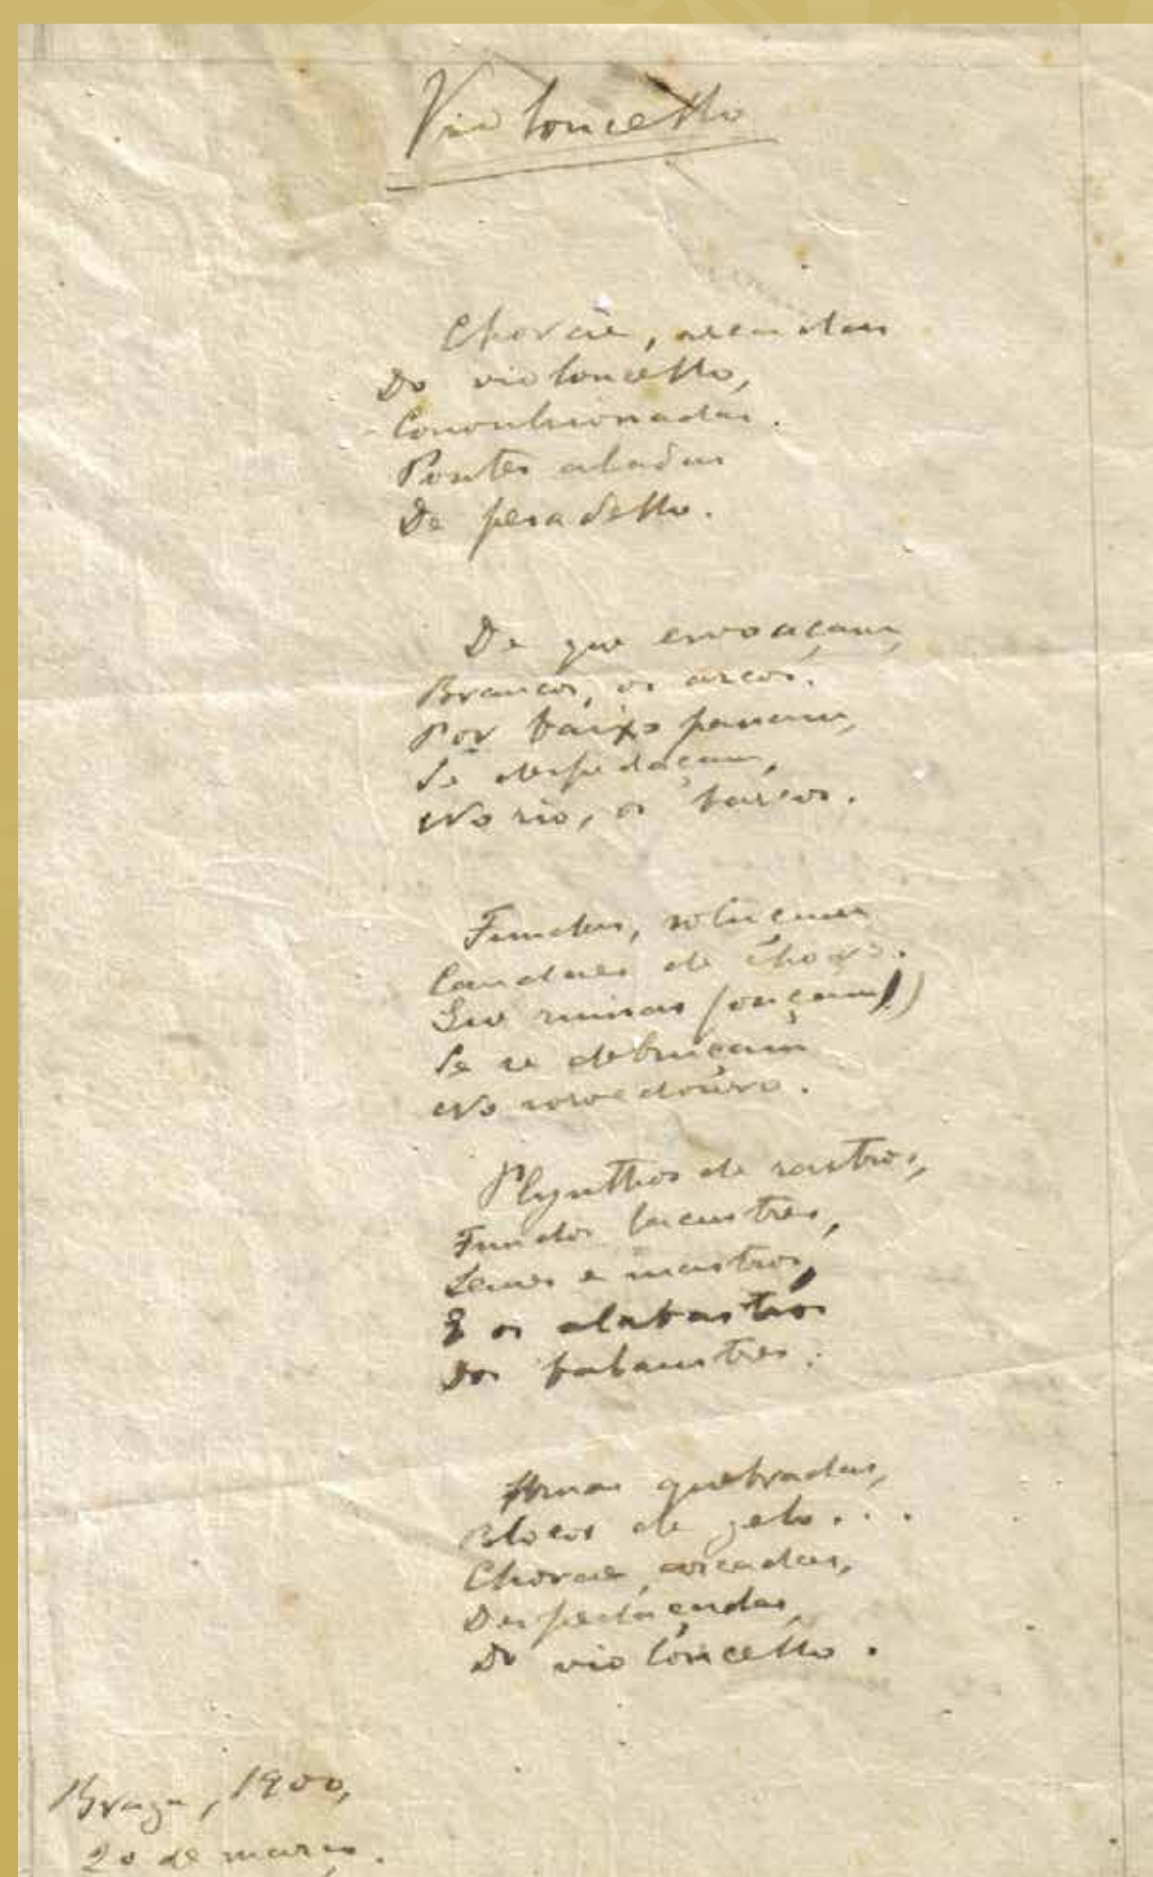 Violoncello
Chorae, arcadas
Do violoncello,
Convulsionadas.
Pontes aladas
De pesadello.
De que esvoaçam,
Brancos, os arcos.
Por baixo passam,
Se despedaçam,
No rio, os barcos.
Fundas, soluçam
Caudaes de choro.
Que ruinas (ouçam)
Se se debruçam
No sorvedouro.
Plynthos de rastros,
Fundos lacustres,
Lemes e mastros,
E os alabastros
Dos balaustres.
Urnas quebradas,
Blocos de gelo...
Chorae, arcadas,
Despedaçadas,
Do violoncello.
Braga, 1900,
20 de março.